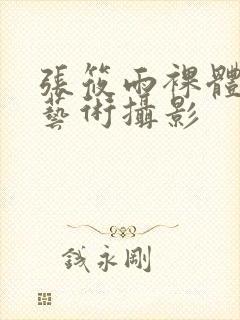 張筱雨裸體
藝術攝影
錢永剛